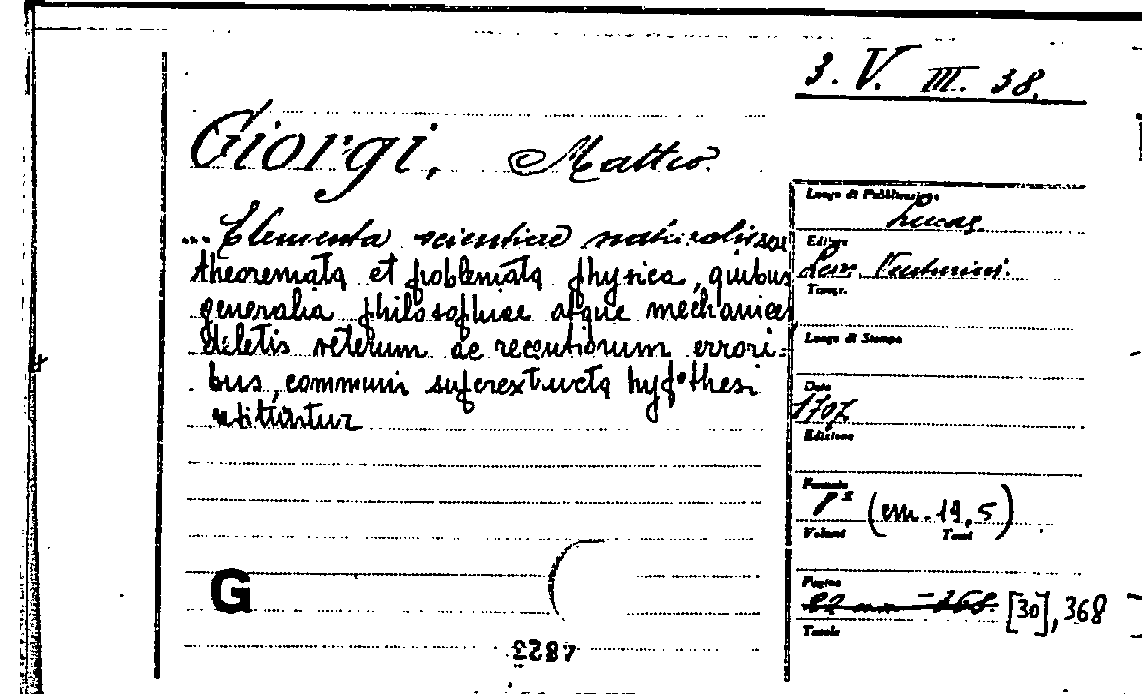 3. V. III. 38.
Giorgi, Matteo.
... Elementa scientiae naturalis seu
theoremata et problemata physica, quibus
generalia philosophiae atque mechanices
deletis veterum ac recentiorum errori-
bus, communi superextructa hypothesi
Luogo di Pubblicazione
Lucae
Editore
Leon. Venturini.
Tipogr.
Luogo di Stampa
Data
1707
Edizione
Formato
8° (cm. 19,5)
Volumi Tomi
Pagine
368. [30], 368
Tavole
G
4823